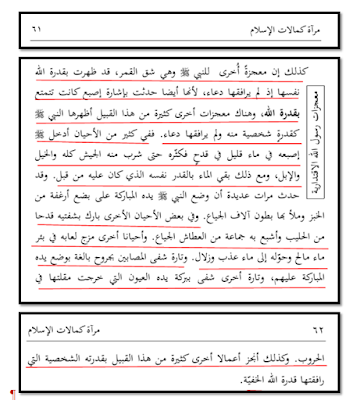 مرآة كمالات الإسلام
٦١
كذلك إن معجزةً أُخرى للنبي ﷺ وهي شق القمر، قد ظهرت بقدرة الله
نفسها إذ لم يرافقها دعاء، لأنها أيضا حدثت بإشارة إصبع كانت تتمتع
بقدرة الله، وهناك معجزات أخرى كثيرة من هذا القبيل أظهرها النبي ﷺ
كقدرةٍ شخصية منه ولم يرافقها دعاء. ففي كثير من الأحيان أدخل ﷺ
إصبعه في ماء قليل في قدحٍ فكثّره حتى شرب منه الجيش كله والخيل
والإبل، ومع ذلك بقي الماء بالقدر نفسه الذي كان عليه من قبل. وقد
حدث مرات عديدة أن وضع النبي ﷺ يده المباركة على بضع أرغفة من
الخبز وملأ بها بطون آلاف الجياع. وفي بعض الأحيان الأخرى بارك بشفتيه قدحا
من الحليب وأشبع به جماعة من العطاش الجياع. وأحيانا أخرى مزج لعابه في بئر
ماء مالح وحوّله إلى ماء عذب وزلال. وتارة شفى المصابين بجروح بالغة بوضع يده
المباركة عليهم، وتارة أخرى شفى ببركة يده العيون التي خرجت مقلتها في
معجزات رسول الله الاقتدارية
٦٢
مرآة كمالات الإسلام
الحروب. وكذلك أنجز أعمالا أخرى كثيرة من هذا القبيل بقدرته الشخصية التي
رافقتها قدرة الله الخفيّة.
¶